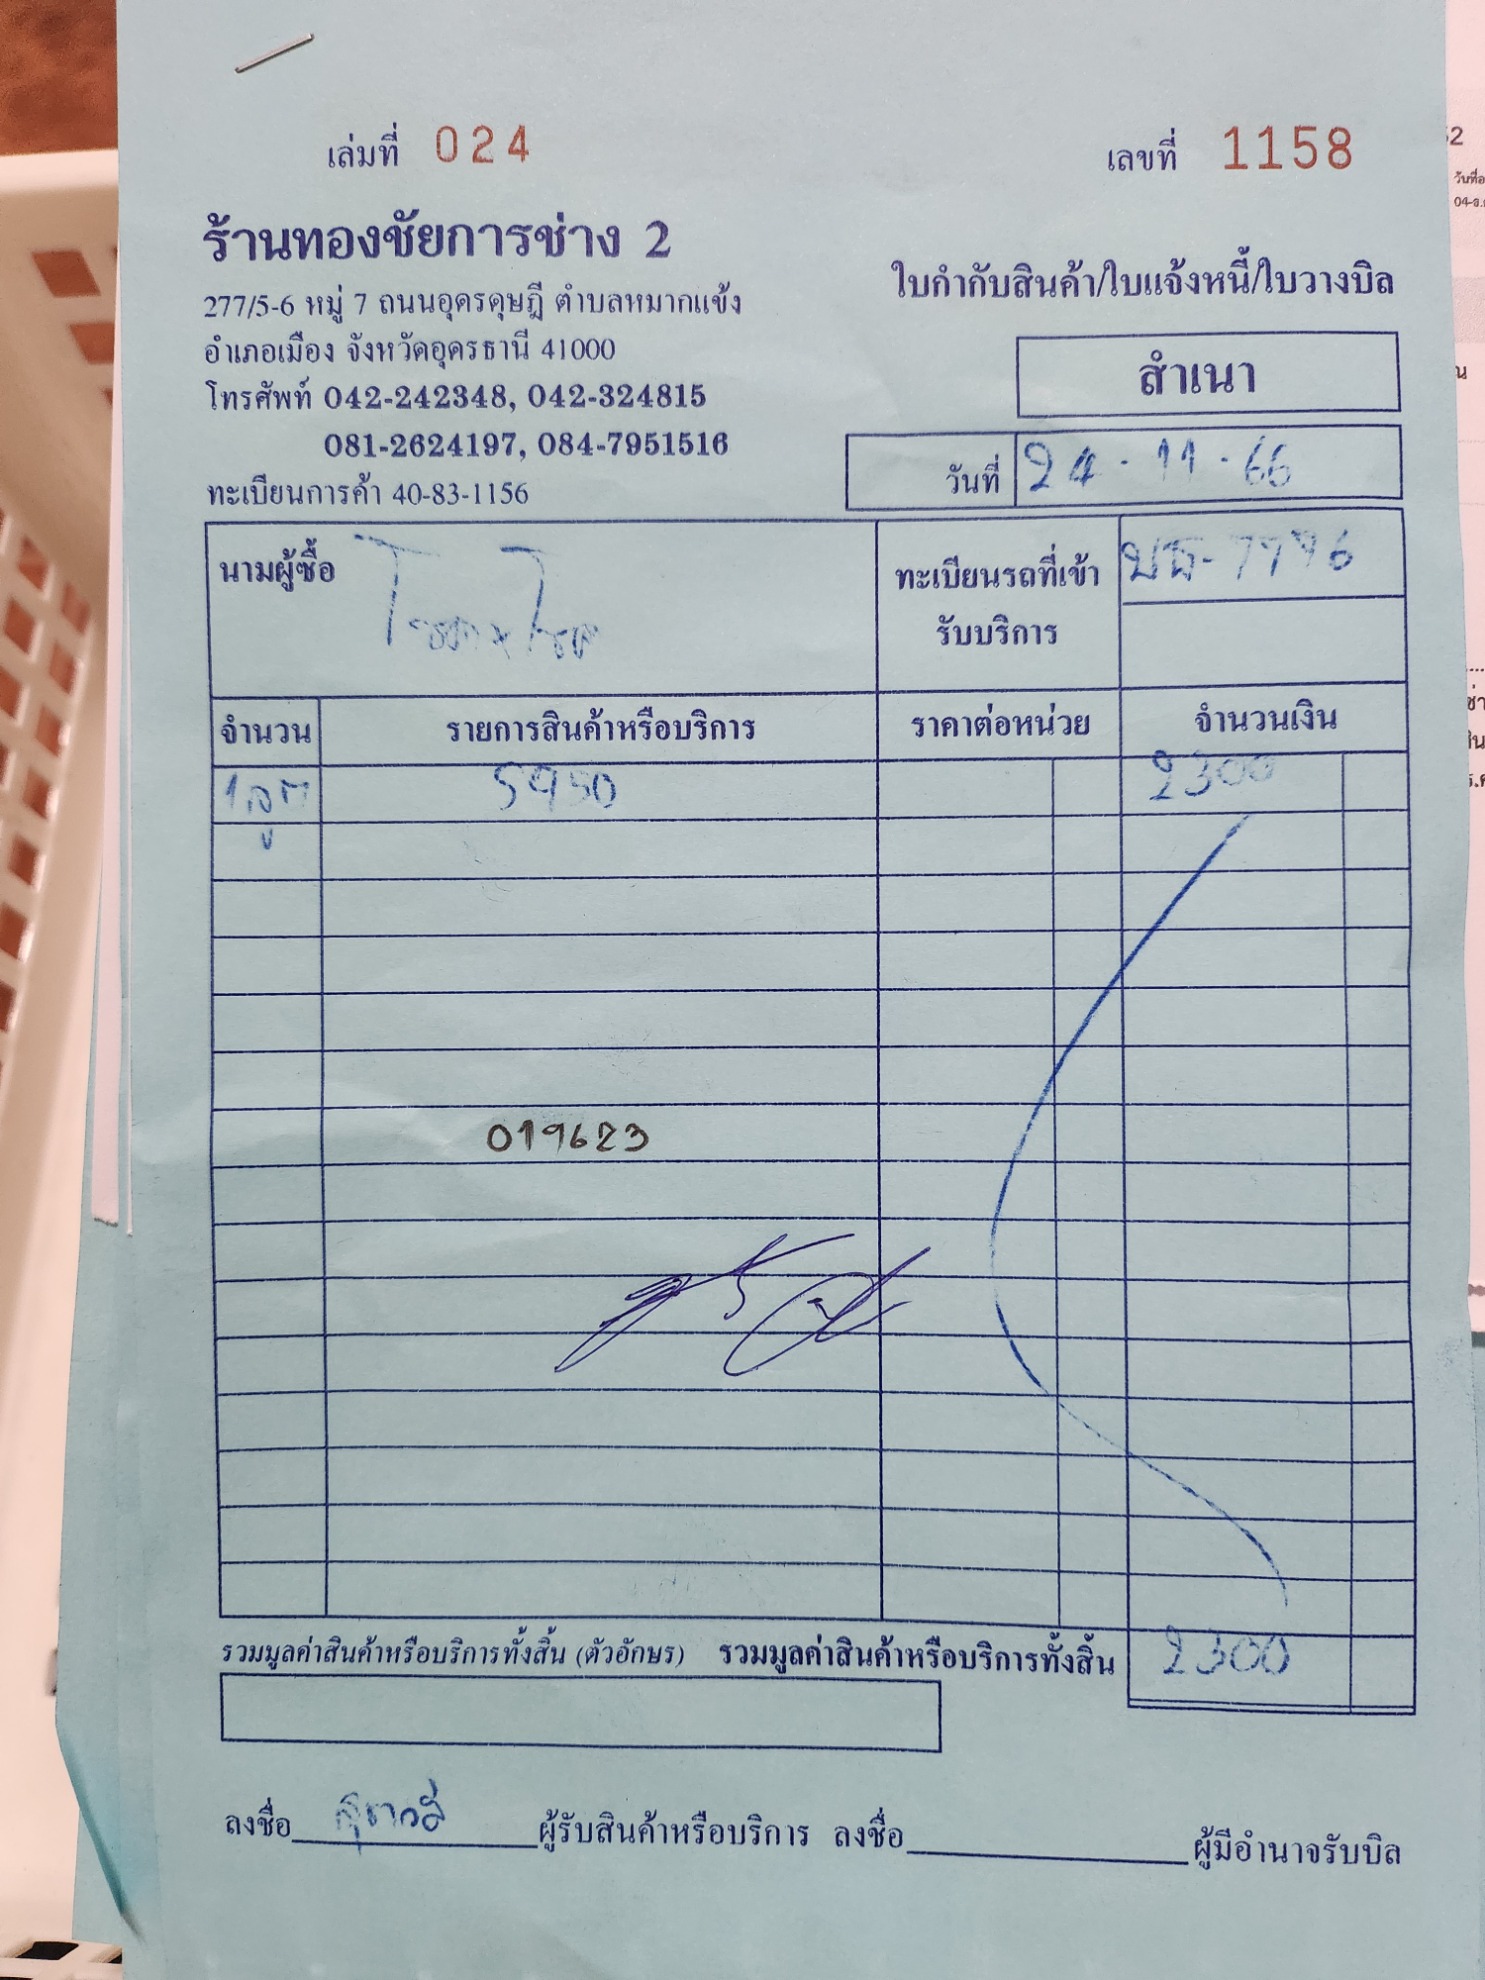 เล่มที่ 024
เลขที่ 1158
ร้านทองชัยการช่าง 2
277/5-6 หมู่ 7 ถนนอุดรดุษฎี ตำบลหมากแข้ง
อำเภอเมือง จังหวัดอุดรธานี 41000
โทรศัพท์ 042-242348, 042-324815
081-2624197, 084-7951516
ทะเบียนการค้า 40-83-1156
ใบกำกับสินค้า/ใบแจ้งหนี้/ใบวางบิล
สำเนา
วันที่ 24-11-66
นามผู้ซื้อ
ทะเบียนรถที่เข้า
รับบริการ
จำนวน รายการสินค้าหรือบริการ ราคาต่อหน่วย จำนวนเงิน
1 ลูก 5950 2300
019623
รวมมูลค่าสินค้าหรือบริการทั้งสิ้น (ตัวอักษร) รวมมูลค่าสินค้าหรือบริการทั้งสิ้น 2300
ลงชื่อ ผู้รับสินค้าหรือบริการ ลงชื่อ ผู้มีอำนาจรับบิล